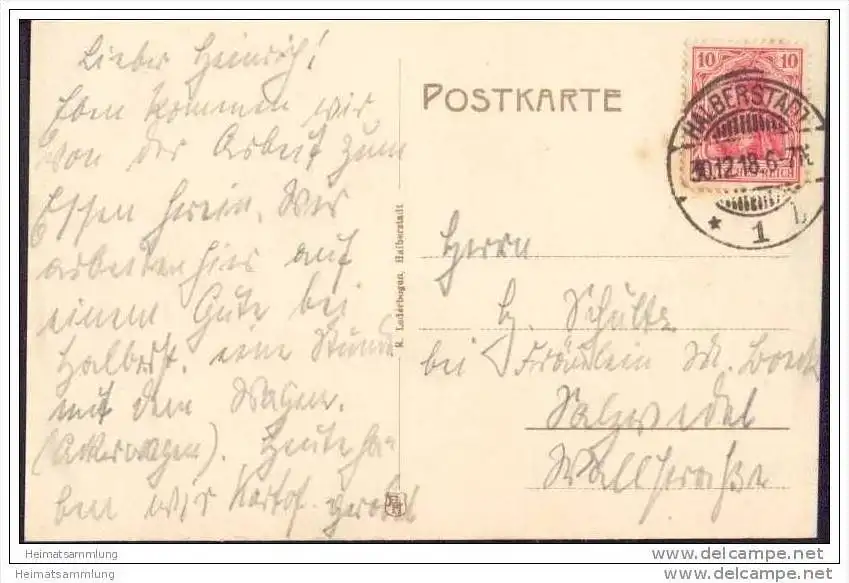 Lieber Heinrich!
Eben kommen wir
von der Arbeit zum
Essen herein. Wir
arbeiten hier auf
einem Gute bei
Halberst. eine Stunde
mit dem Wagen.
(Ackerwagen). Heute ha-
ben wir Kartof. gerodet
POSTKARTE
R. Lederbogen, Halberstadt
10 10
HALBERSTADT
30.12.18.6-7N.
* 1 b
Herrn
H. Schultz
bei Fräulein M. Boeck
Salzwedel
Wallstraße
Heimatsammlung
www.delcampe.net
Heimatsammlung
www.delcampe.net